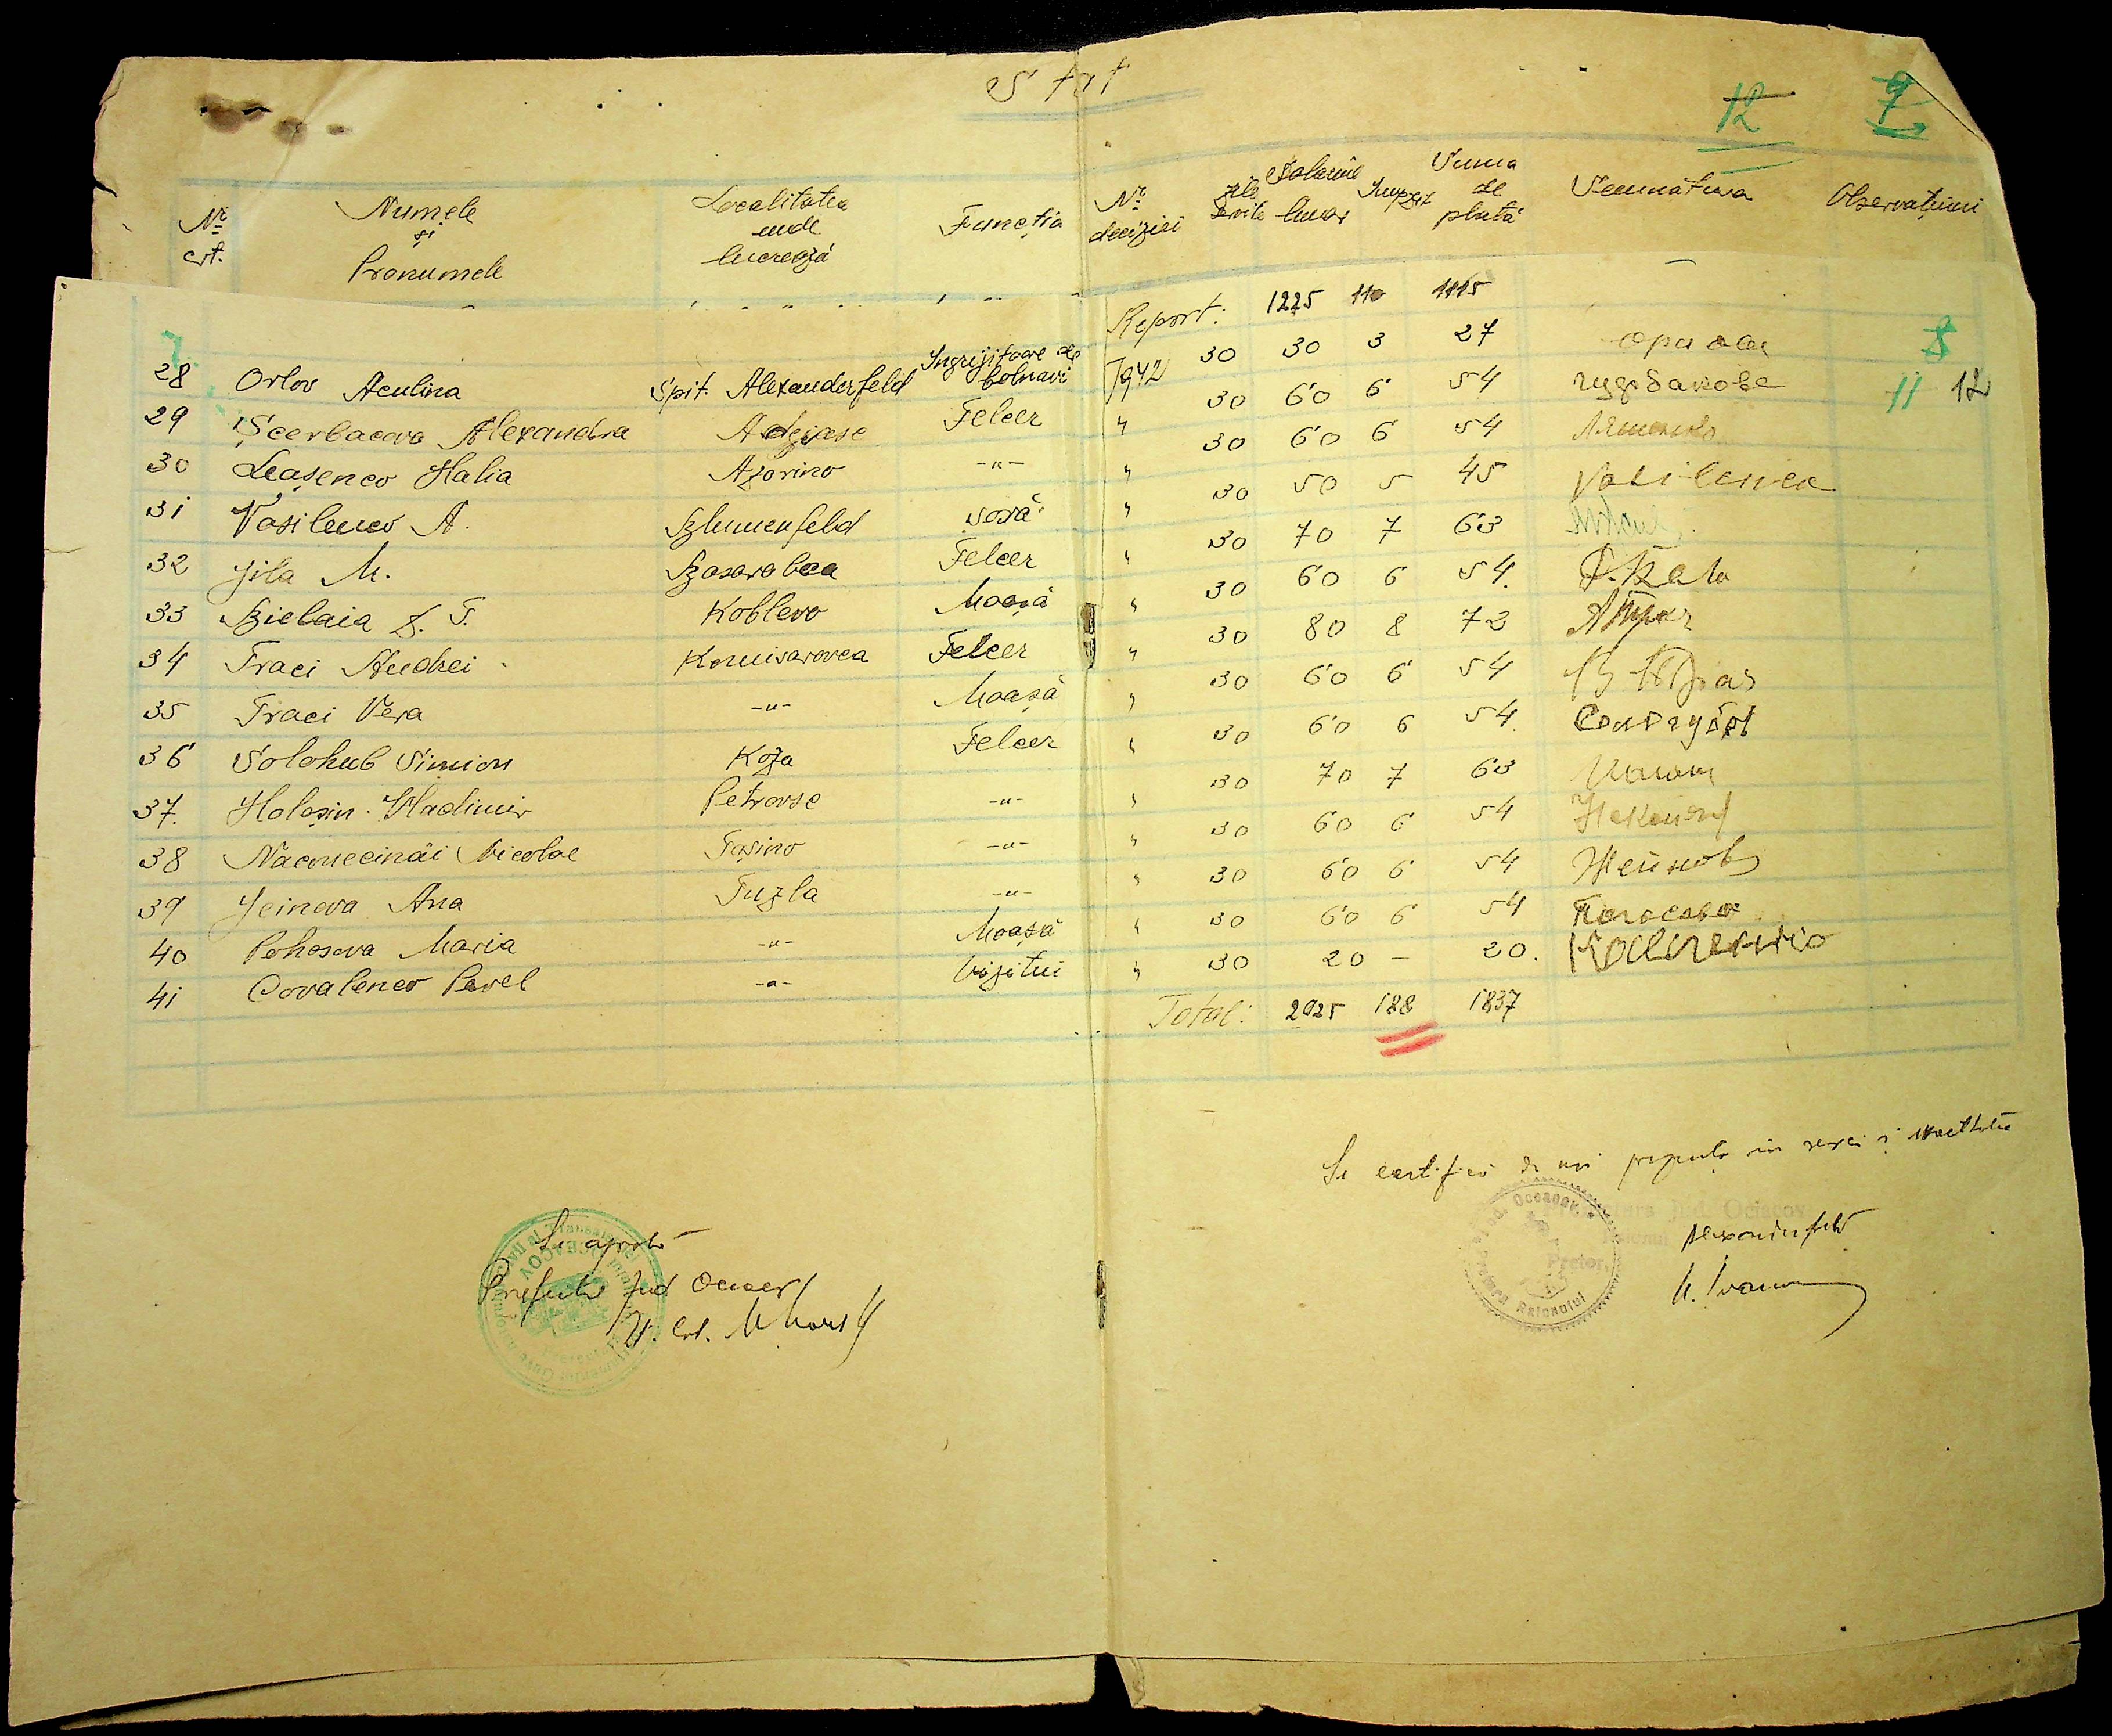 Stat
12 9
Nr. crt. Numele și Pronumele Localitatea unde lucrează Funcția Nr. deciziei zile servite Salariu lunar Impozit Suma de plată Semnătura Observațiuni
Report: 1225 110 1115
28 Orlov Aculina Spit. Alexanderfeld Ingrijitoare de bolnavi 1942 30 30 3 27 8
29 Șcerbacova Alexandra Adgiase Felcer " 30 60 6 54 11 12
30 Leașenco Halia Azarino -"- " 30 60 6 54 Ляшенко
31 Vasilenco A. Blumenfeld soră " 30 50 5 45 Vasilenco
32 Jila M. Basarabca Felcer " 30 70 7 63
33 Bielaia Z. T. Koblevo Moașă " 30 60 6 54
34 Traci Andrei Komisarovca Felcer " 30 80 8 72
35 Traci Vera -"- Moașă " 30 60 6 54
36 Solohub Simion Koza Felcer " 30 60 6 54
37. Halașin Vladimir Petrovse -"- " 30 70 7 63
38 Naconecinâi Nicolae Tașino -"- " 30 60 6 54
39 Jeinova Ana Tuzla -"- " 30 60 6 54 Жейнова
40 Pohosova Maria -"- Moașă " 30 60 6 54 Погосова
41 Covalenco Pavel -"- Vizitui " 30 20 - 20. Коваленко
Total: 2025 188 1837
Se certifică de noi
Jud. Ociacov
Pretor,
Alexanderfeld
Se aprobă
Prefectul Jud Oceacov
Lt. Col.